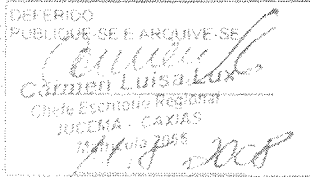 DEFERIDO
PUBLIQUE-SE E ARQUIVE-SE
Carmen Luisa Lux
Chefe Escritório Regional
JUCEMA - CAXIAS
Matrícula 2055
14 8 2008